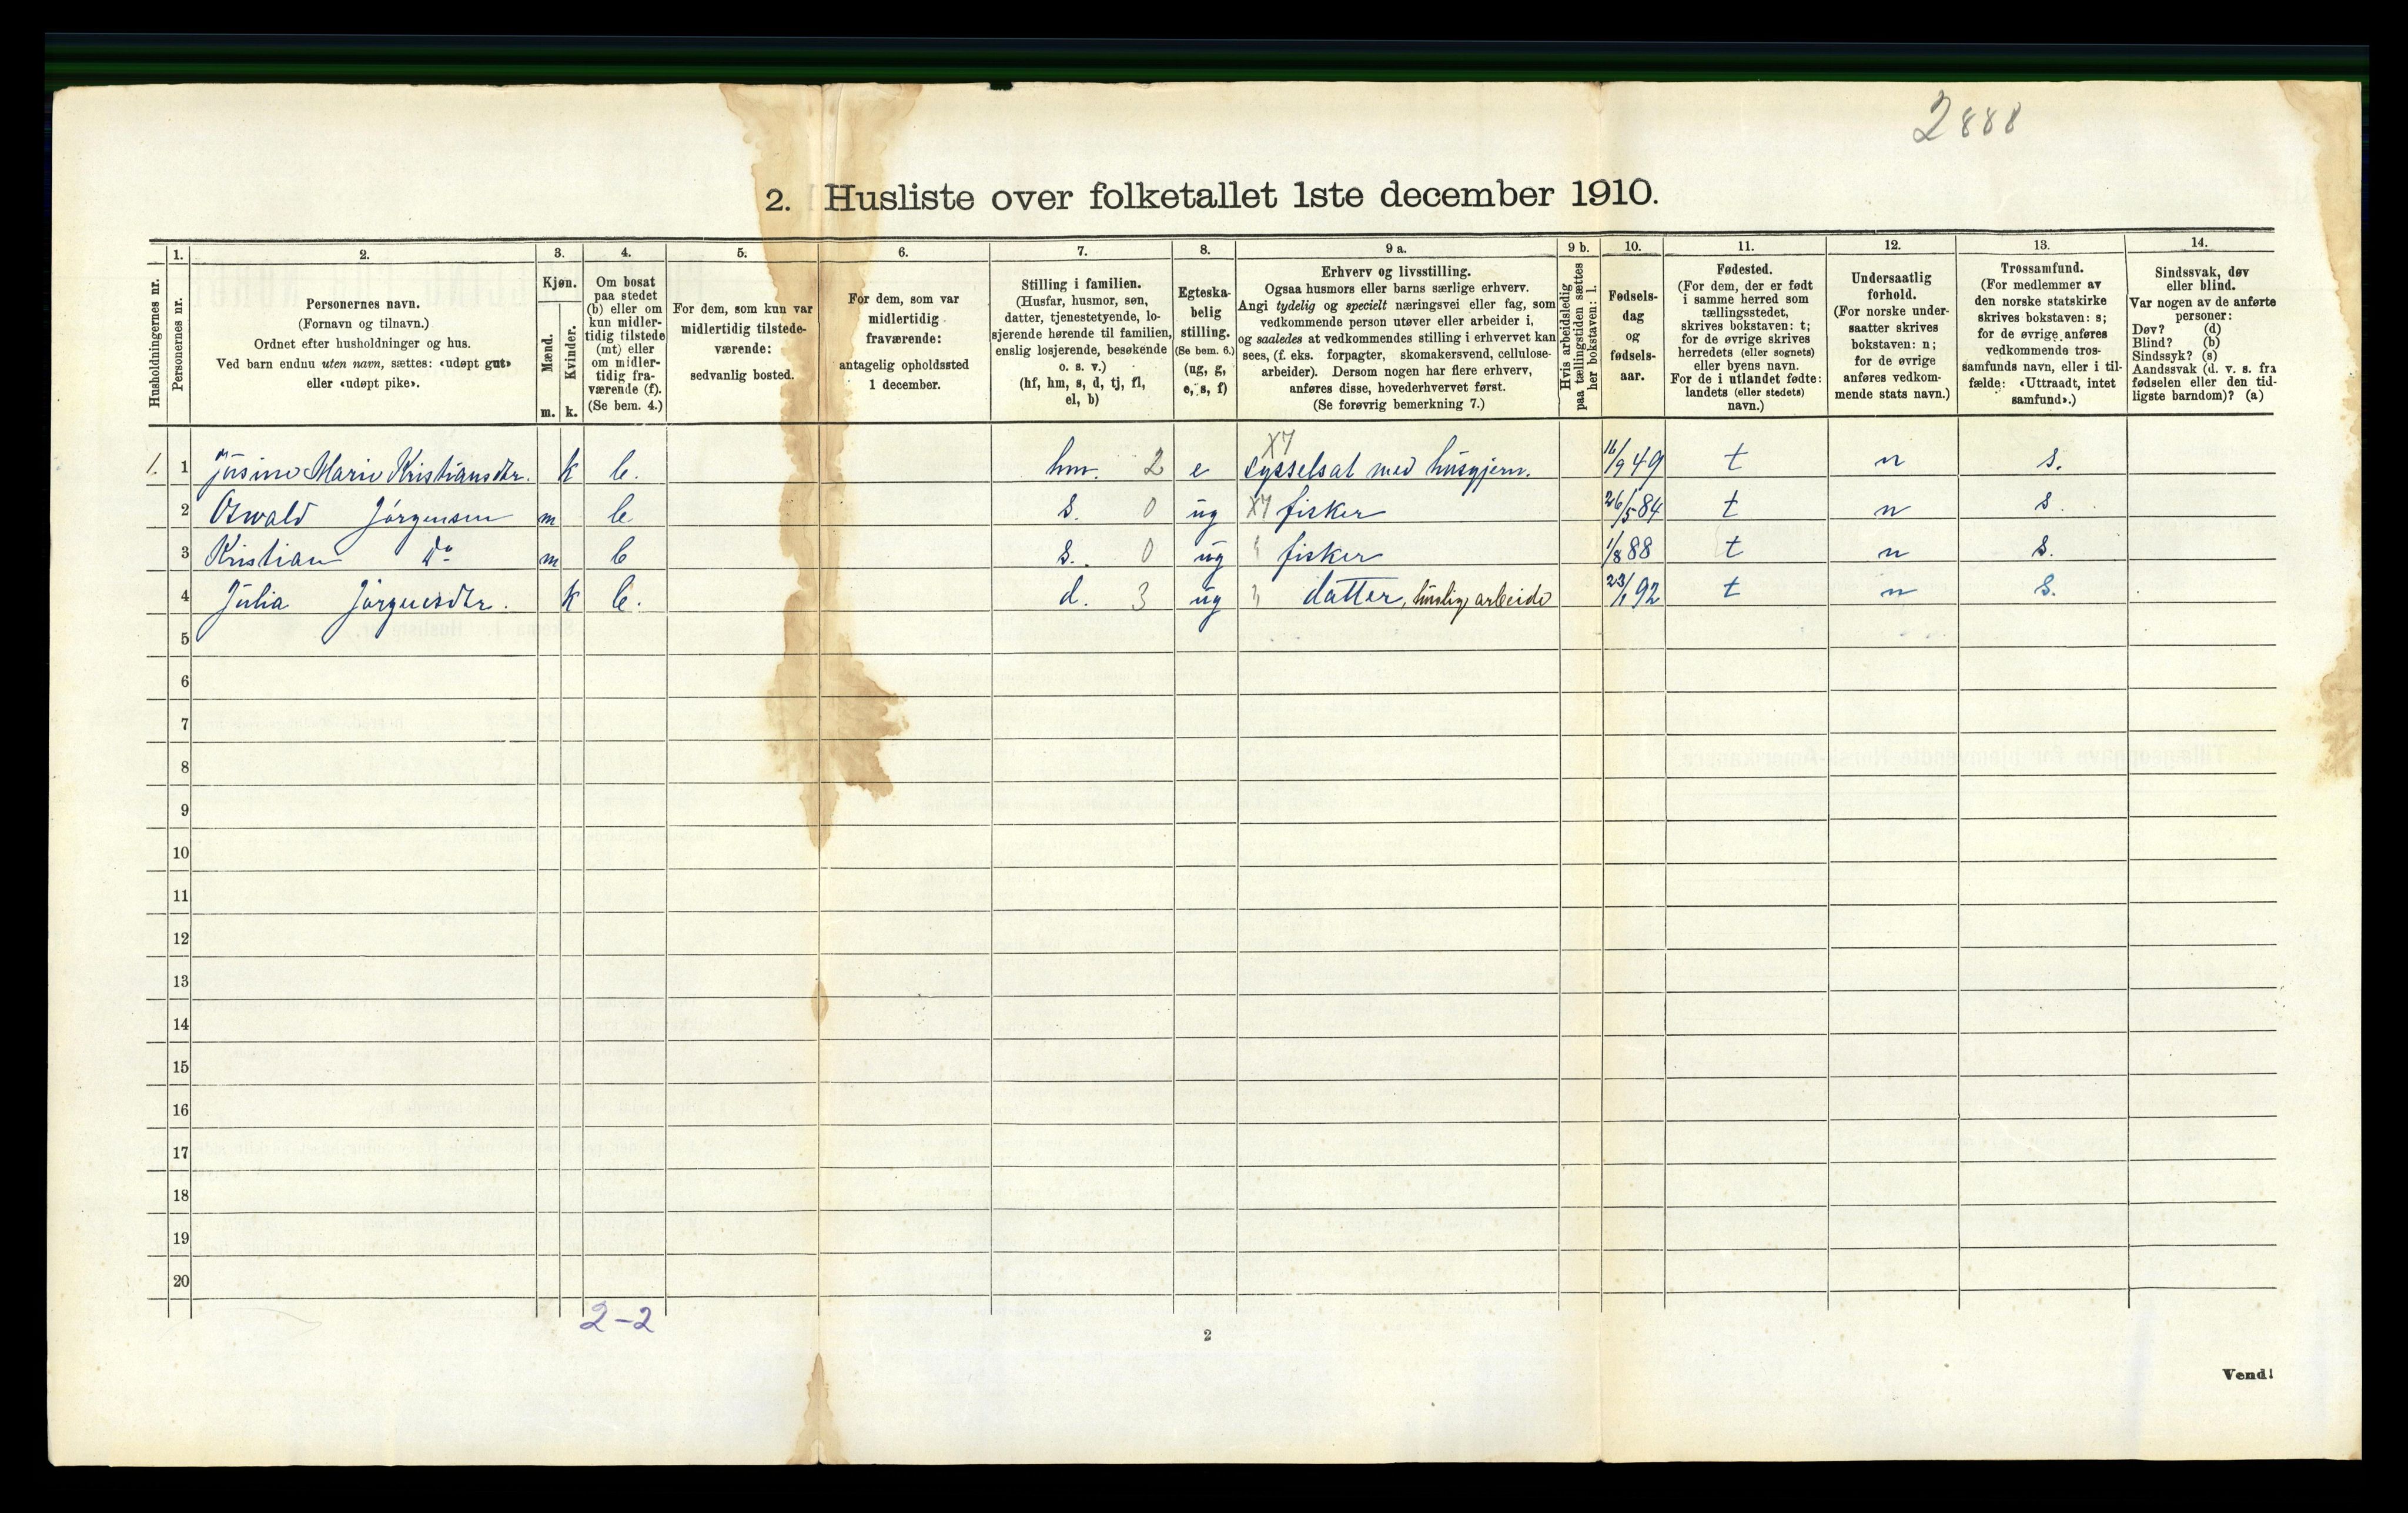 2888
2. Husliste over folketallet 1ste december 1910.
Husholdningernes nr.
1.
Personernes nr.
2.
Personernes navn.
(Fornavn og tilnavn.)
Ordnet efter husholdninger og hus.
Ved barn endnu uten navn, sættes: «udøpt gut»
eller «udøpt pike».
3.
Kjøn.
Mænd.
Kvinder.
m. k.
4.
Om bosat
paa stedet
(b) eller om
kun midler-
tidig tilstede
(mt) eller
om midler-
tidig fra-
værende (f).
(Se bem. 4.)
5.
For dem, som kun var
midlertidig tilstede-
værende:
sedvanlig bosted.
6.
For dem, som var
midlertidig
fraværende:
antagelig opholdssted
1 december.
7.
Stilling i familien.
(Husfar, husmor, søn,
datter, tjenestetyende, lo-
sjerende hørende til familien,
enslig losjerende, besøkende
o. s. v.)
(hf, hm, s, d, tj, fl,
el, b)
8.
Egteska-
belig
stilling.
(Se bem. 6.)
(ug, g,
e, s, f)
9 a.
Erhverv og livsstilling.
Ogsaa husmors eller barns særlige erhverv.
Angi tydelig og specielt næringsvei eller fag, som
vedkommende person utøver eller arbeider i,
og saaledes at vedkommendes stilling i erhvervet kan
sees, (f. eks. forpagter, skomakersvend, cellulose-
arbeider). Dersom nogen har flere erhverv,
anføres disse, hovederhvervet først.
(Se forøvrig bemerkning 7.)
9 b.
Hvis arbeidsledig
paa tællingstiden sættes
her bokstaven: l.
10.
Fødsels-
dag
og
fødsels-
aar.
11.
Fødested.
(For dem, der er født
i samme herred som
tællingsstedet,
skrives bokstaven: t;
for de øvrige skrives
herredets (eller sognets)
eller byens navn.
For de i utlandet fødte:
landets (eller stedets)
navn.)
12.
Undersaatlig
forhold.
(For norske under-
saatter skrives
bokstaven: n;
for de øvrige
anføres vedkom-
mende stats navn.)
13.
Trossamfund.
(For medlemmer av
den norske statskirke
skrives bokstaven: s;
for de øvrige anføres
vedkommende tros-
samfunds navn, eller i til-
fælde: «Uttraadt, intet
samfund».)
14.
Sindssvak, døv
eller blind.
Var nogen av de anførte
personer:
Døv? (d)
Blind? (b)
Sindssyk? (s)
Aandssvak (d. v. s. fra
fødselen eller den tid-
ligste barndom)? (a)
X7
1. 1 Jusine Marie Kristiansdtr. k b. hm. 2 e sysselsat med husgjern. 16/9 49 t n s.
2 Oswald Jørgensen m b s. 0 ug X7 fisker 26/5 84 t n s.
3 Kristian do m b s. 0 ug " fisker 1/8 88 t n s.
4 Julia Jørgensdtr. k b. d. 3 ug " datter, huslig arbeide 23/1 92 t n s.
5
6
7
8
9
10
11
12
13
14
15
16
17
18
19
20
2-2
2
Vend!